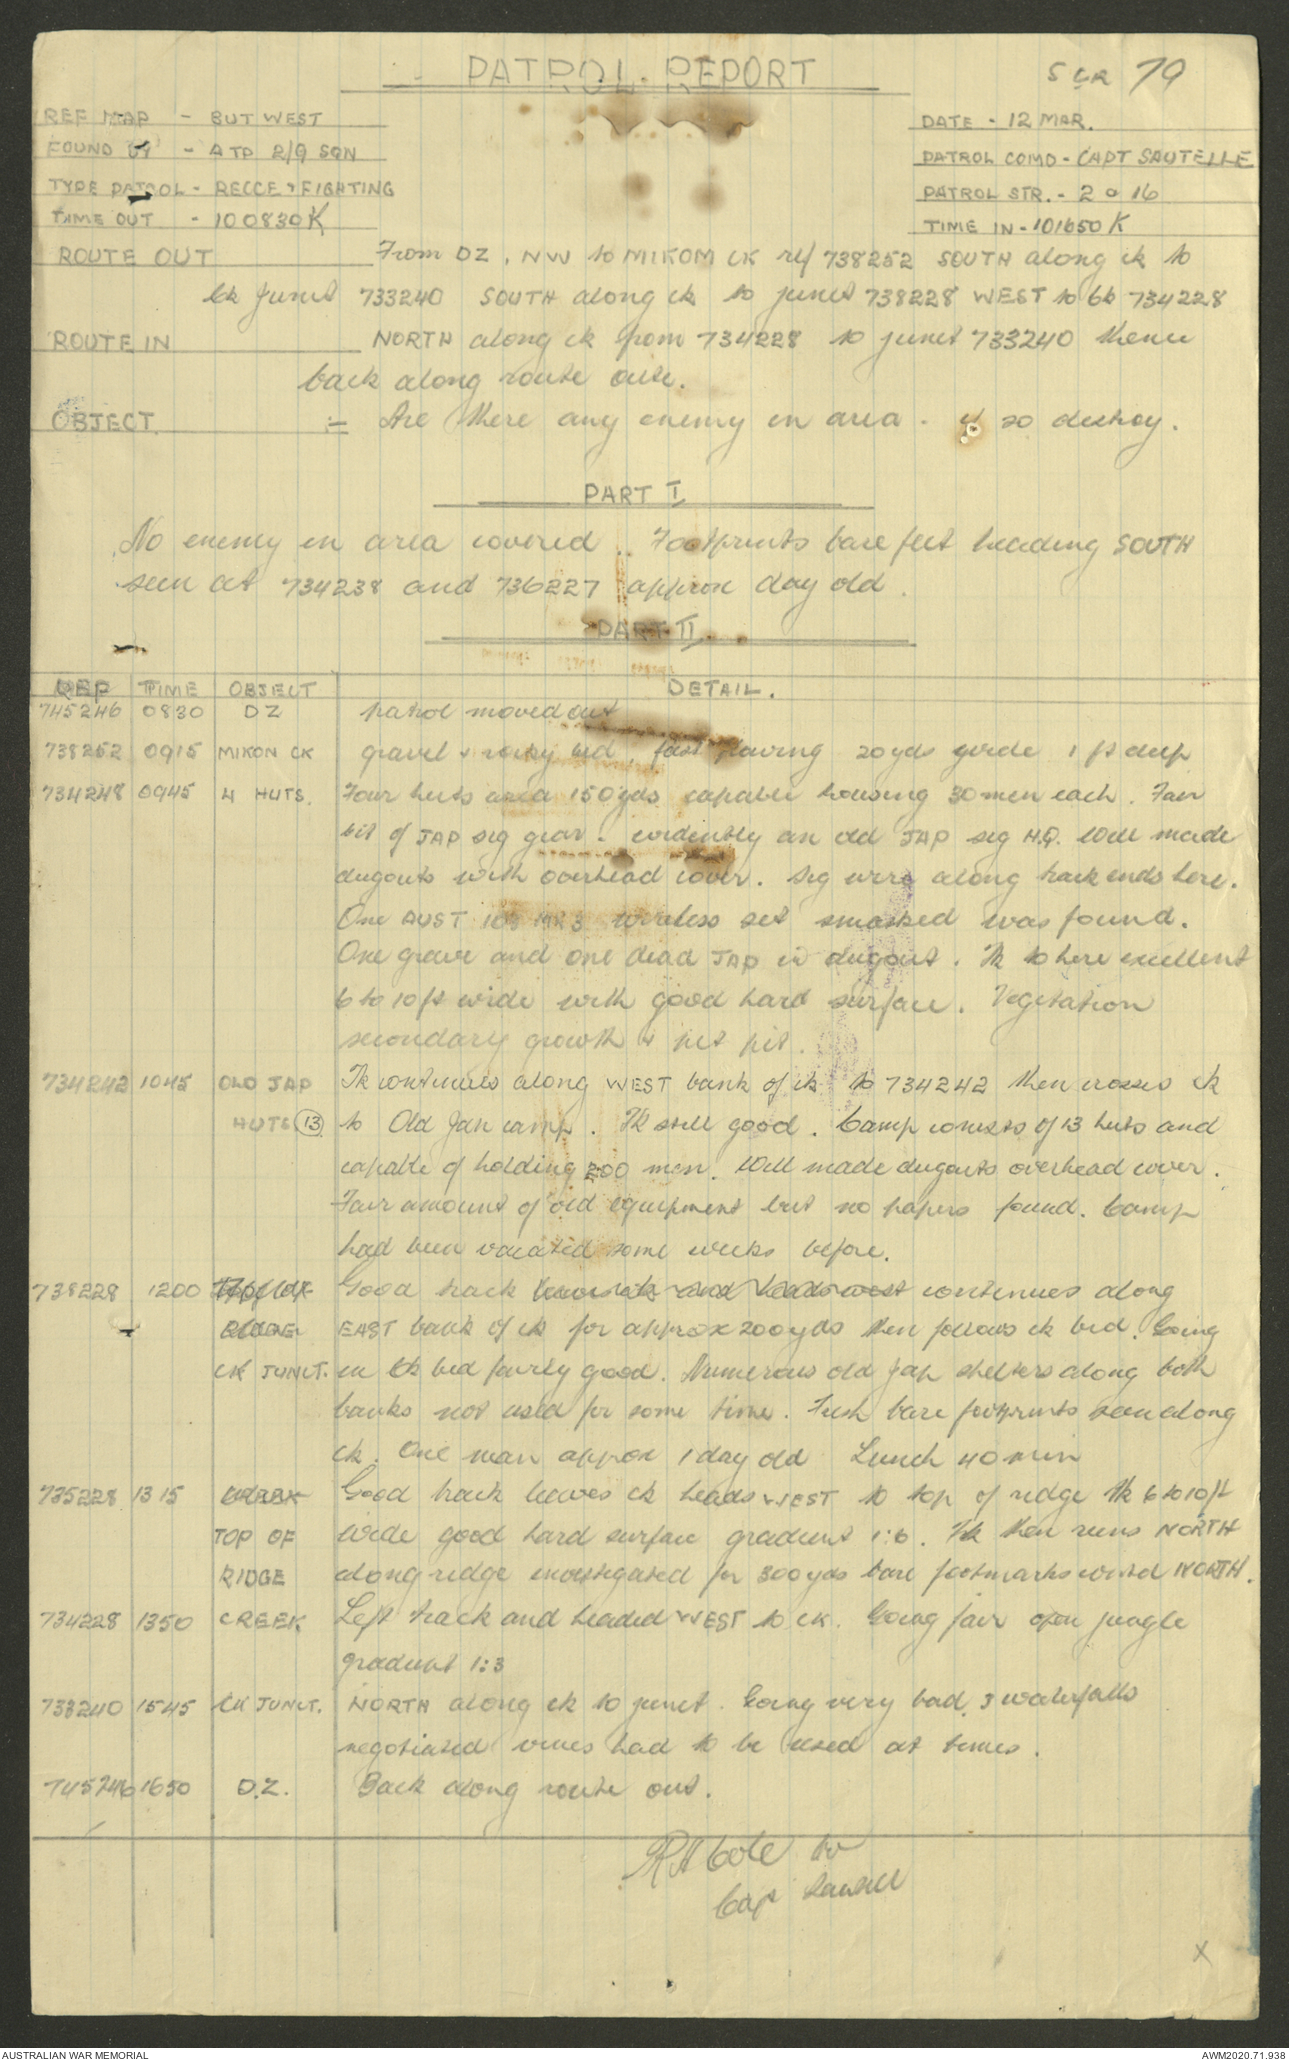 PATROL REPORT
79
REF MAP - BUT WEST
DATE - 12 MAR.
FOUND BY - A TP 2/9 SQN
PATROL COMD - CAPT SAUTELLE
TYPE PATROL - RECCE & FIGHTING
PATROL STR. - 2 o 16
TIME OUT - 100830K
TIME IN - 101650K
ROUTE OUT From DZ, NW to MIKOM CK ref 738252 SOUTH along ck to
Ck junct 733240 SOUTH along ck to junct 738228 WEST to Ck 734228
ROUTE IN NORTH along ck from 734228 to junct 733240 thence
back along route out.
OBJECT :- Are there any enemy in area - if so destroy.
PART I
No enemy in area covered. Footprints bare feet heading SOUTH
seen at 734238 and 736227 approx day old.
PART II
REF TIME OBJECT DETAIL.
745246 0830 DZ patrol moved out
738252 0915 MIKON CK gravel & rocky bed, fast flowing 20yds wide 1 ft deep
734248 0945 4 HUTS. Four huts area 150yds capable housing 30 men each. Fair
bit of JAP sig gear - evidently an old JAP sig H.Q. Well made
dugouts with overhead cover. Sig wire along track ends here.
One AUST 108 MK3 wireless set smashed was found.
One grave and one dead JAP in dugout. Tk to here excellent
6 to 10ft wide with good hard surface. Vegetation
secondary growth &
734242 1045 OLD JAP Tk continues along WEST bank of ck to 734242 then crosses ck
HUTS (13) to Old Jap camp. Tk still good. Camp consists of 13 huts and
capable of holding 200 men. Well made dugouts overhead cover.
Fair amount of old equipment but no papers found. Camp
had been vacated some weeks before.
738228 1200 Good track leaves ck and heads west continues along
RIDGE EAST bank of ck for approx 200yds then follows ck bed. Going
CK JUNCT. in Ck bed fairly good. Numerous old Jap shelters along both
banks not used for some time. Fresh bare footprints seen along
ck. One man approx 1 day old Lunch 40 min
735228 1315 CREEK Good track leaves ck heads WEST to top of ridge Tk 6 to 10ft
TOP OF wide good hard surface gradient 1:6. Tk then runs NORTH
RIDGE along ridge investigated for 300yds bare footmarks NORTH.
734228 1350 CREEK Left track and headed WEST to ck. Going fair open jungle
gradient 1:3
733240 1545 CK JUNCT. NORTH along ck to junct. Going very bad. 3 waterfalls
negotiated vines had to be used at times.
745246 1650 D.Z. Back along route out.
R H Cole for
Capt Sautelle
X
AUSTRALIAN WAR MEMORIAL
AWM2020.71.938